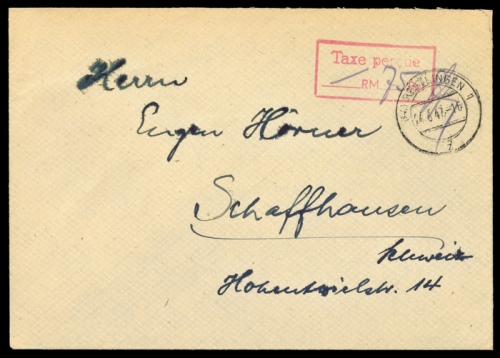 Taxe perçue
RM. 75
REUTLINGEN 1
Herrn
Eugen Hörner
Schaffhausen
Schweiz
Hohentwielstr. 14